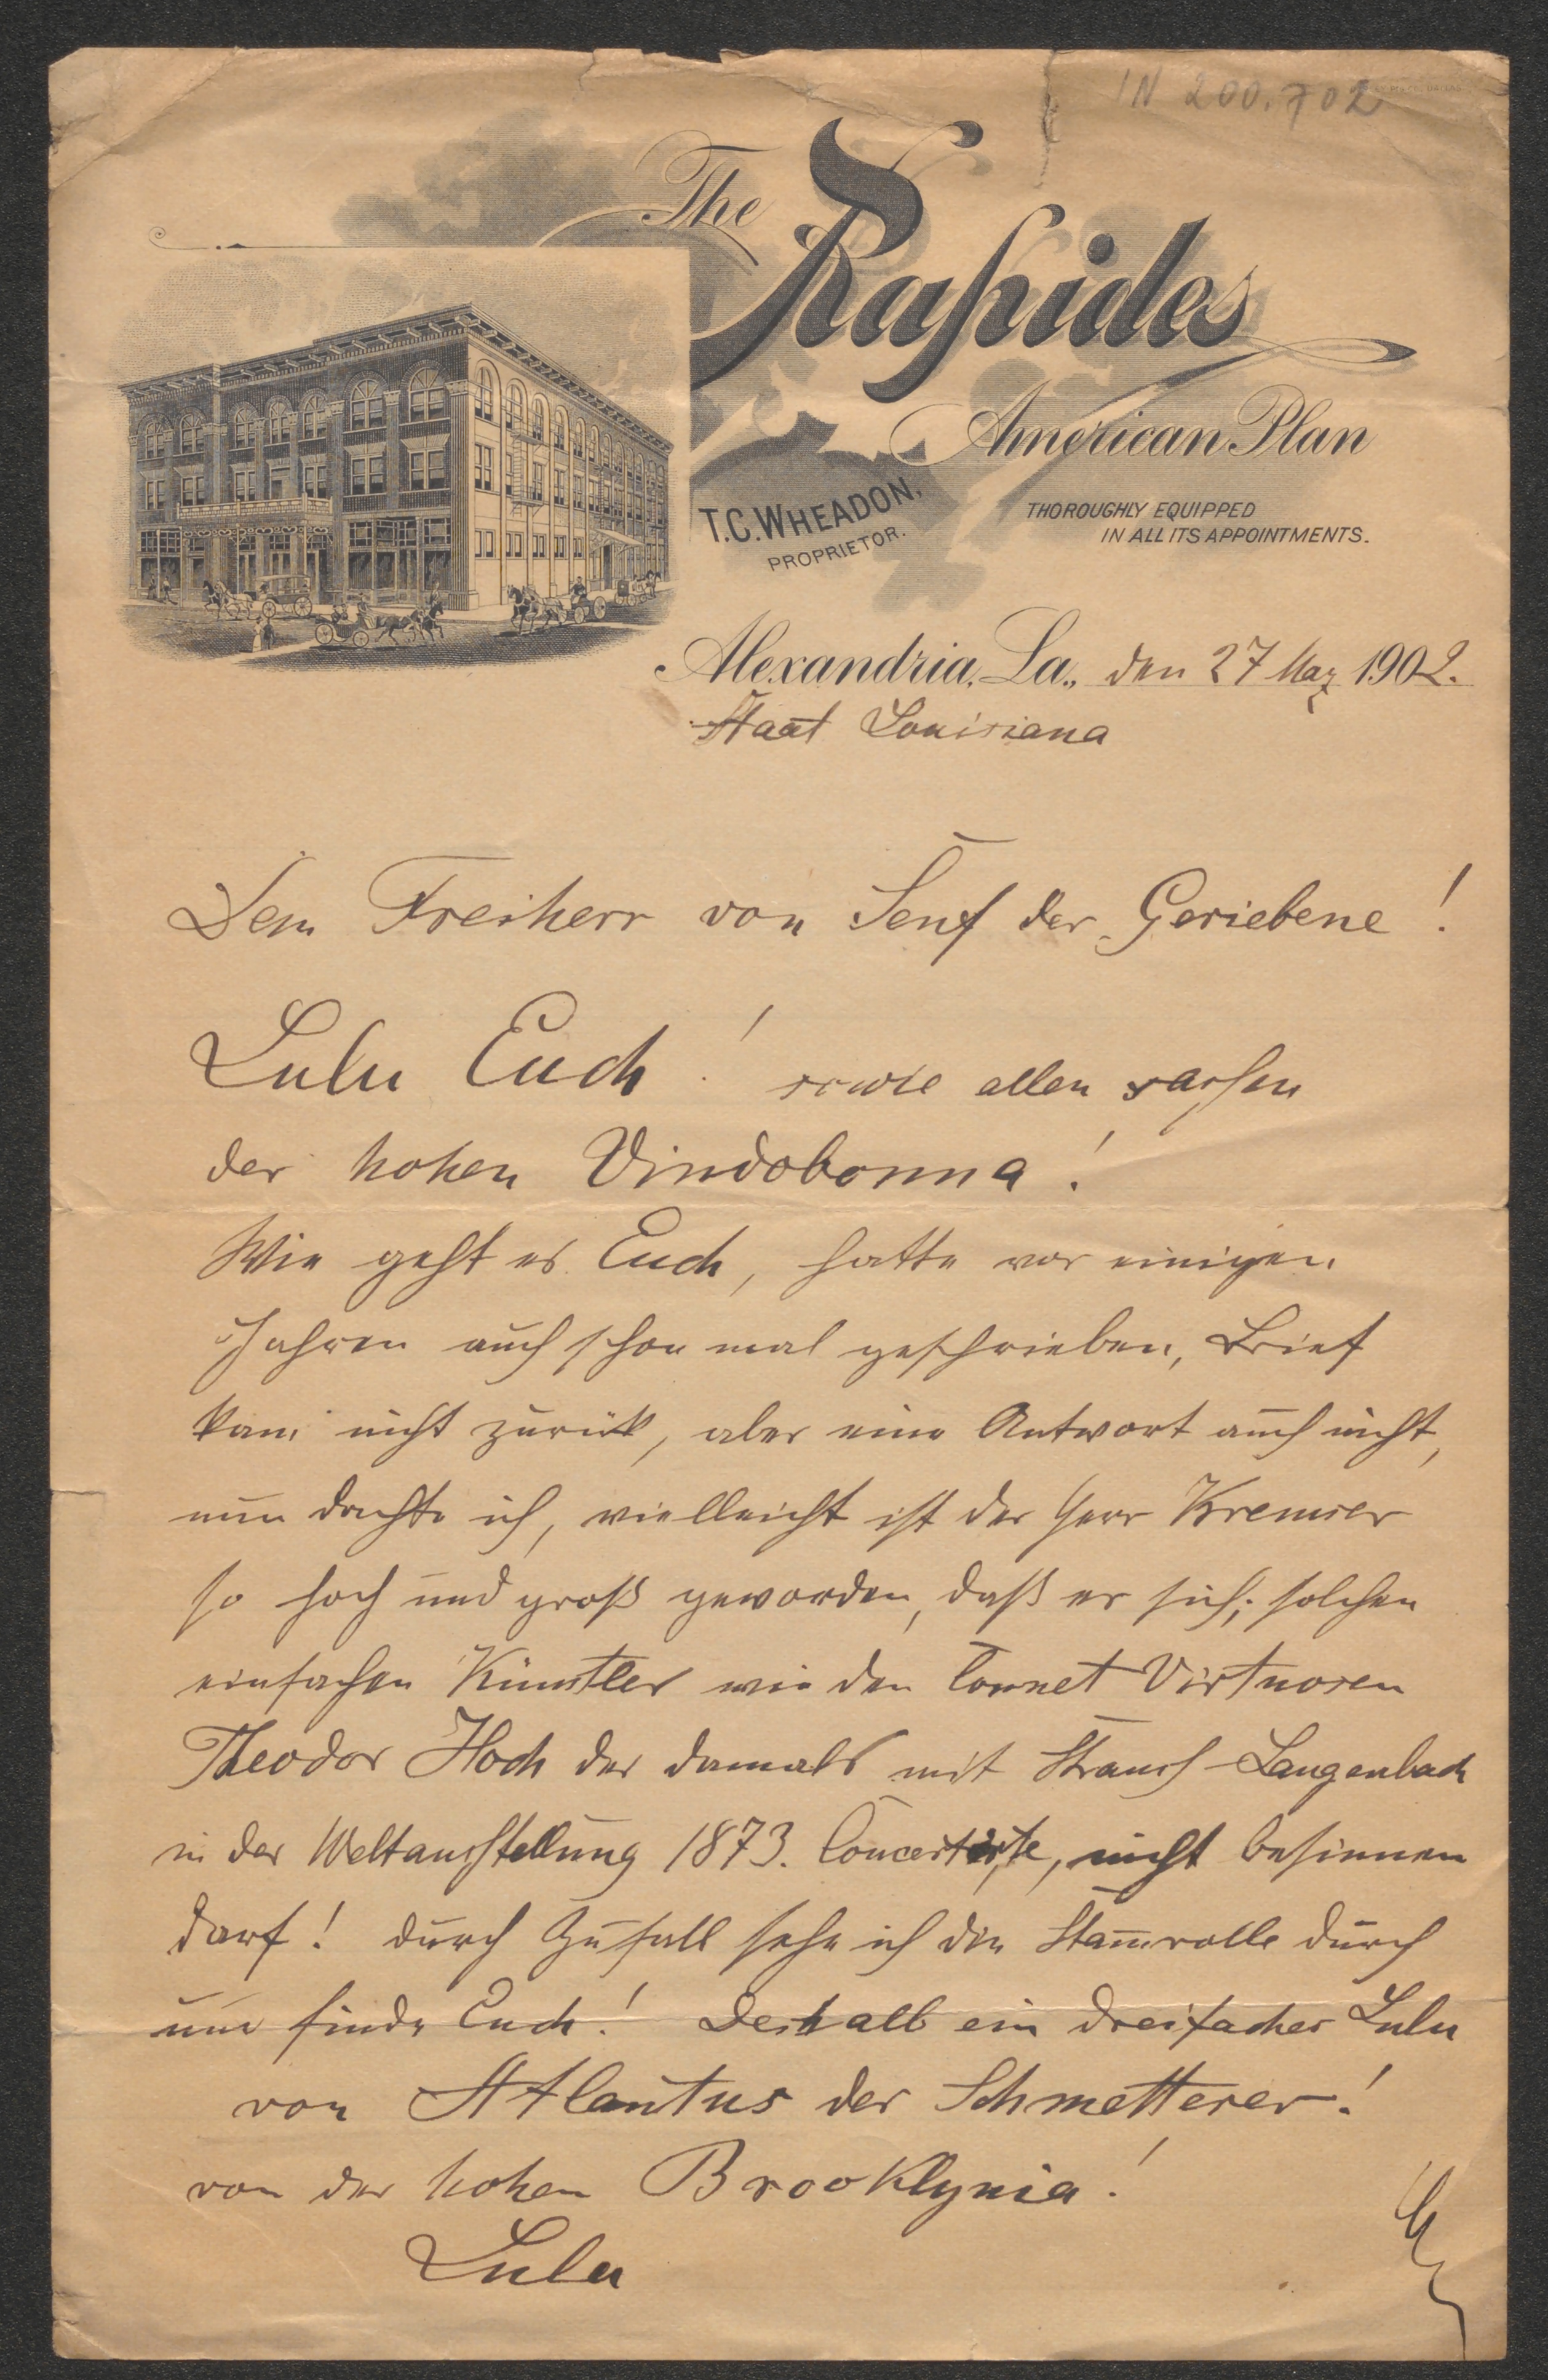 IN 200.702
The
Rapides
American Plan
T.C. WHEADON,
PROPRIETOR.
THOROUGHLY EQUIPPED
IN ALL ITS APPOINTMENTS.
Alexandria, La., den 27 May 1902.
Staat Louisiana
Dem Freiherr von Senf der Geriebene!
Lulu Euch! sowie allen sassen
der hohen Vindobonna!
Wie geht es Euch, hatte vor einigen
Jahren auch schon mal geschrieben, Brief
kam nicht zurück, aber eine Antwort auch nicht,
nun dachte ich, vielleicht ist der Herr Kremser
so hoch und groß geworden, daß er sich, solchen
einfachen Künstler wie den Cornet Virtuosen
Theodor Hoch der damals mit Strauss-Langenbach
in der Weltausstellung 1873. Concertirte, nicht besinnen
darf! durch Zufall sehe ich die Stammrolle durch
und finde Euch! Deshalb ein dreifaches Lulu
von Atlantus der Schmetterer!
von der hohen Brooklynia!
Lulu